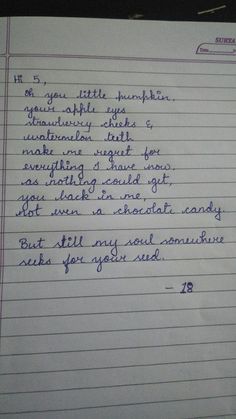 SURYA
Date
Hi 5,
Oh you little pumpkin,
your apple eyes
strawberry cheeks &
watermelon teeth
make me regret for
everything I have now,
as nothing could get,
you back in me,
not even a chocolate candy.
But still my soul somewhere
seeks for your seed.
- 18